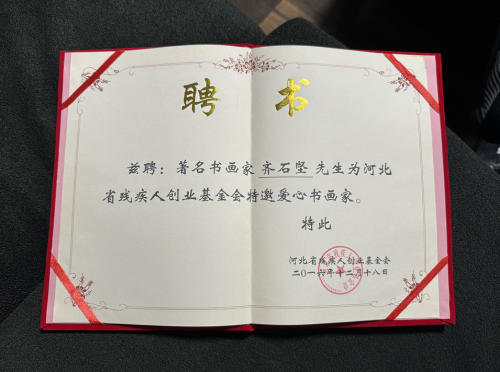 聘书
兹聘：著名书画家 齐石坚 先生为河北
省残疾人创业基金会特邀爱心书画家。
特此
河北省残疾人创业基金会
二〇一六年十二月十八日